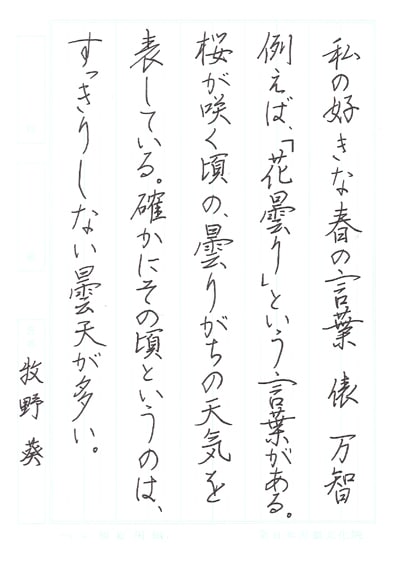 私の好きな春の言葉 俵 万智
例えば、「花曇り」という言葉がある。
桜が咲く頃の、曇りがちの天気を
表している。確かにその頃というのは、
すっきりしない曇天が多い。
牧野 葵